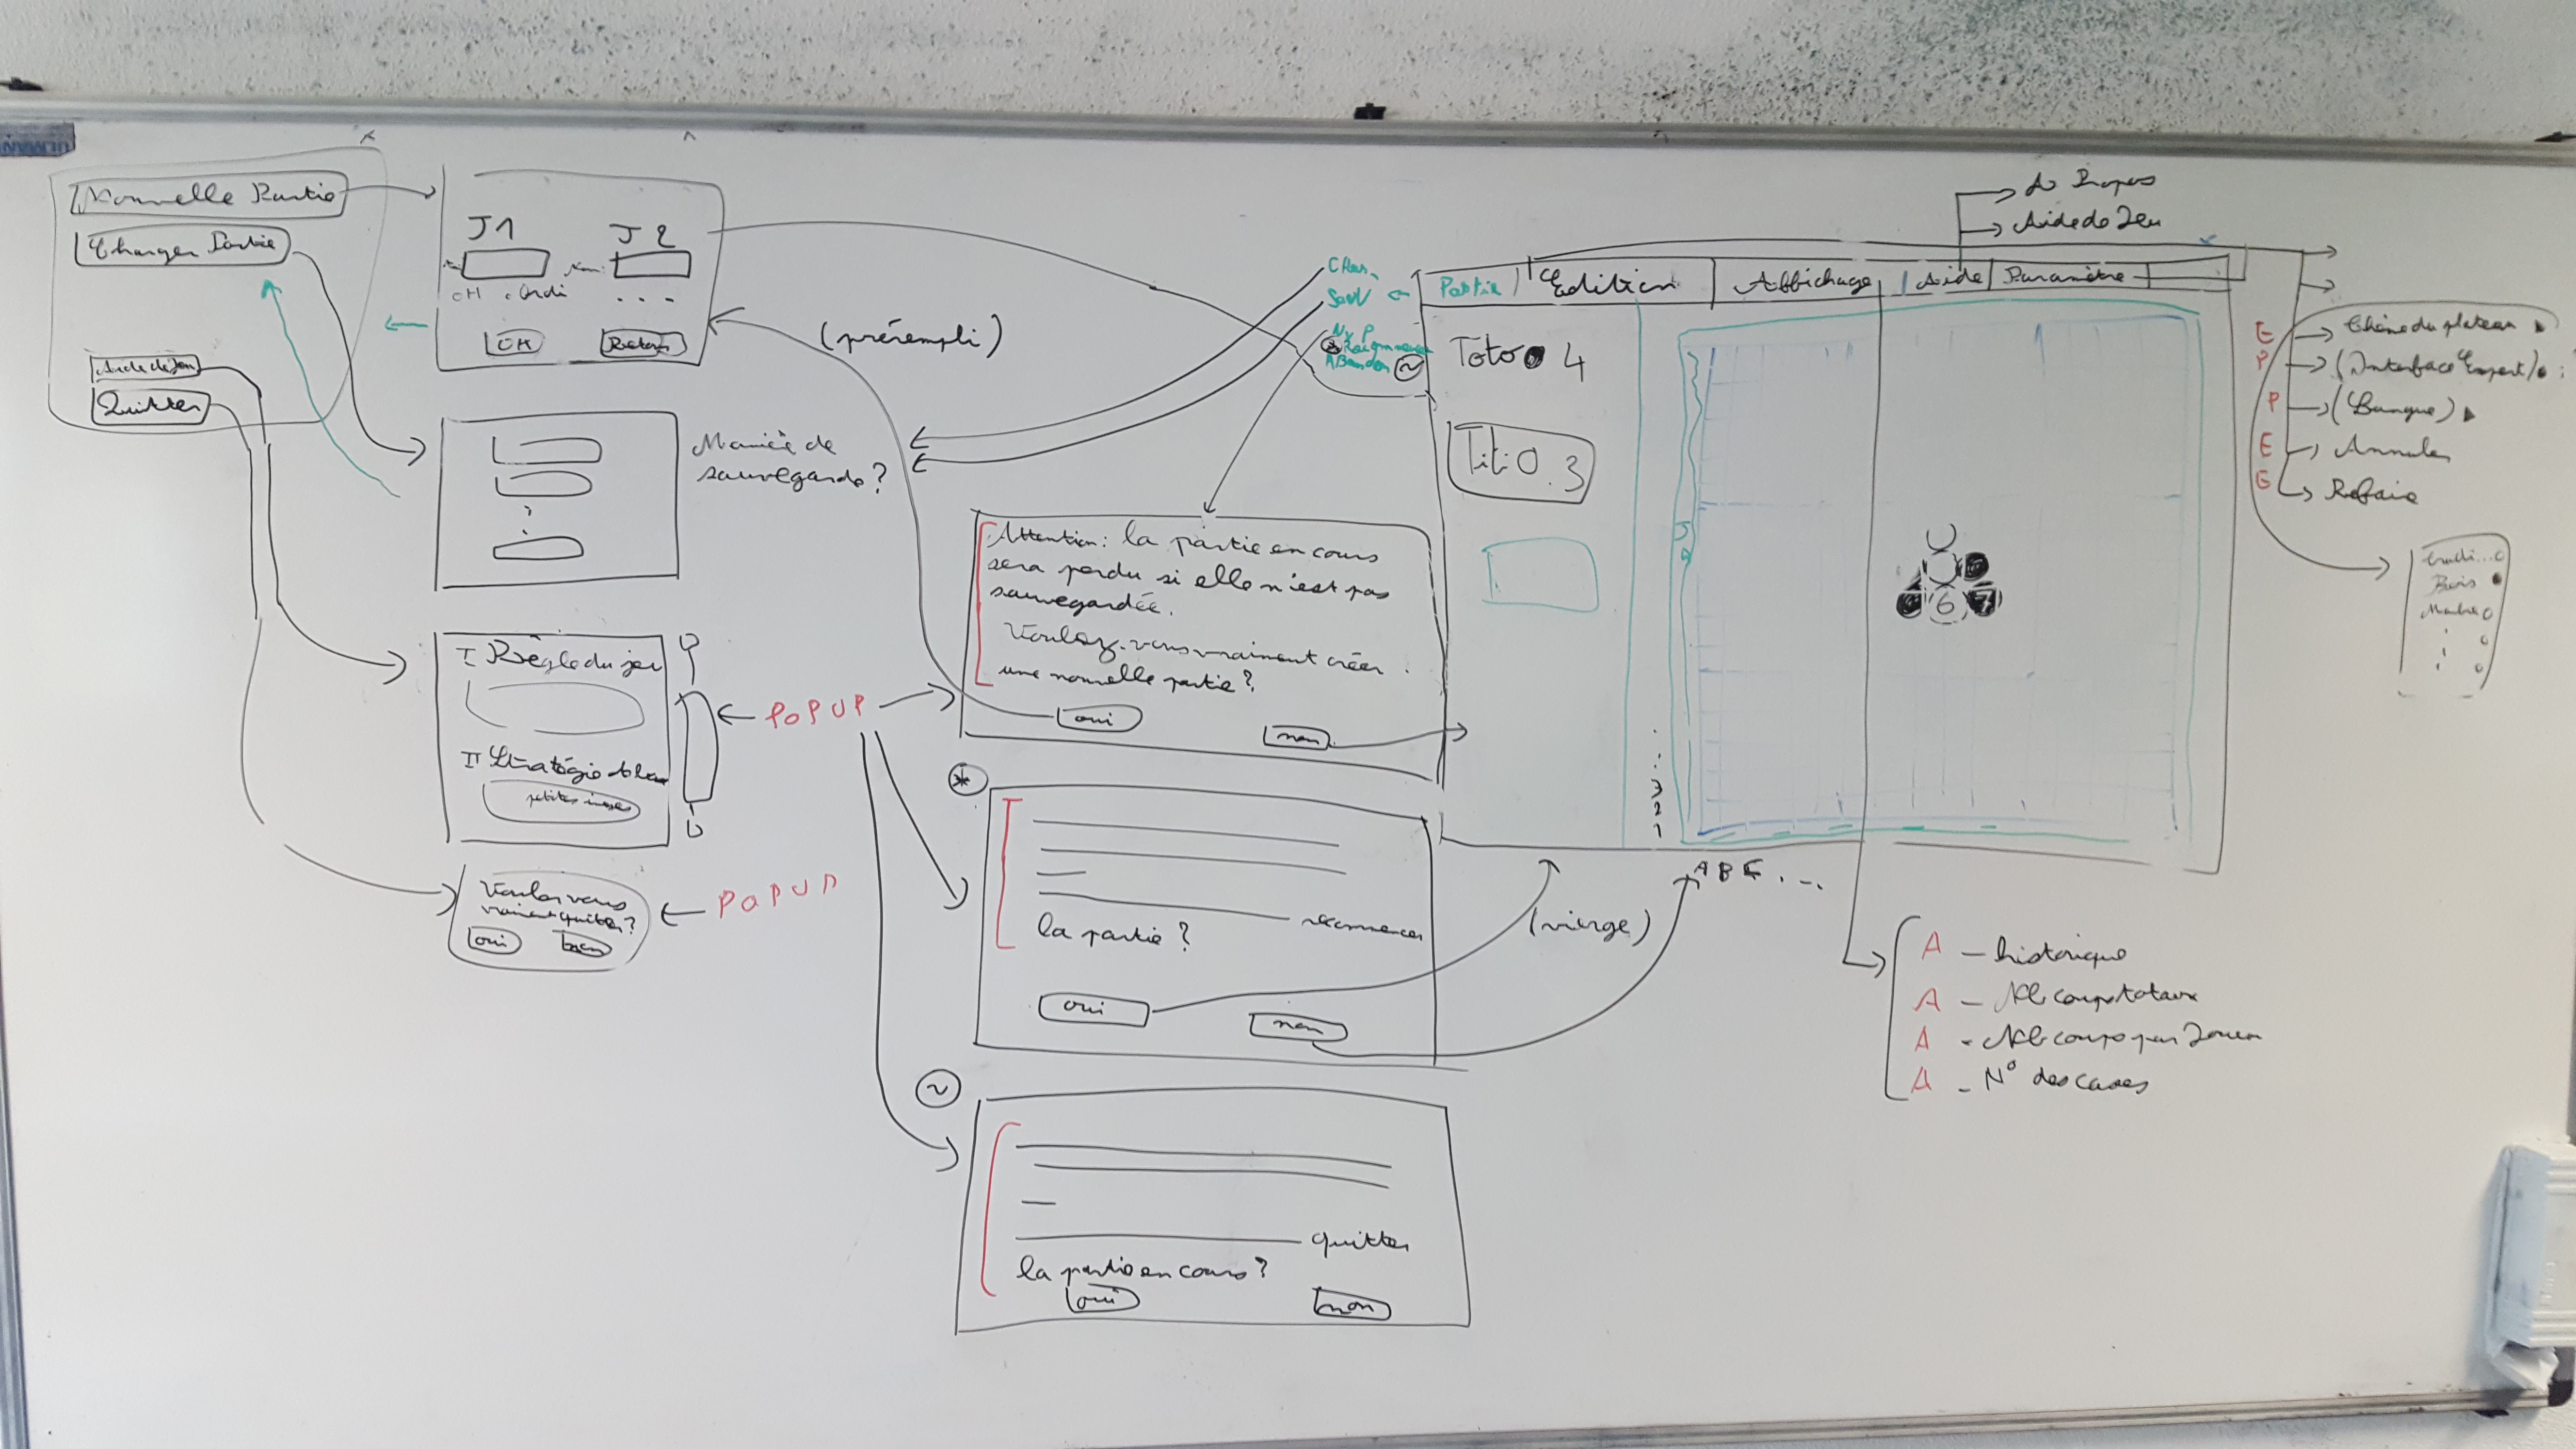 Nouvelle Partie
Charger Partie
Aide de jeu
Quitter
J1
J2
. . .
OK
Retour
(prérempli)
Manière de
sauvegarde ?
I Règle du jeu
II Stratégie
petites images
POPUP
Voulez vous
vraiment quitter ?
oui
non
POPUP
Attention : la partie en cours
sera perdu si elle n'est pas
sauvegardée.
Voulez-vous vraiment créer
une nouvelle partie ?
oui
non
*
recommencer
la partie ?
oui
non
(vierge)
~
quitter
la partie en cours ?
oui
non
Char.
Sauv
Nv P
Recommencer
ABandon
~
Partie
Edition
Affichage
Aide
Paramètre
A Propos
Aide de Jeu
Toto 4
Titi O.3
6 7
3
2
1
A B C . . .
E Thème du plateau
P (Interface Expert)
P (Banque)
E Annuler
E Refaire
Bois
Marbre
A - historique
A - Nb coups totaux
A - Nb coups par Joueur
A - N° des cases